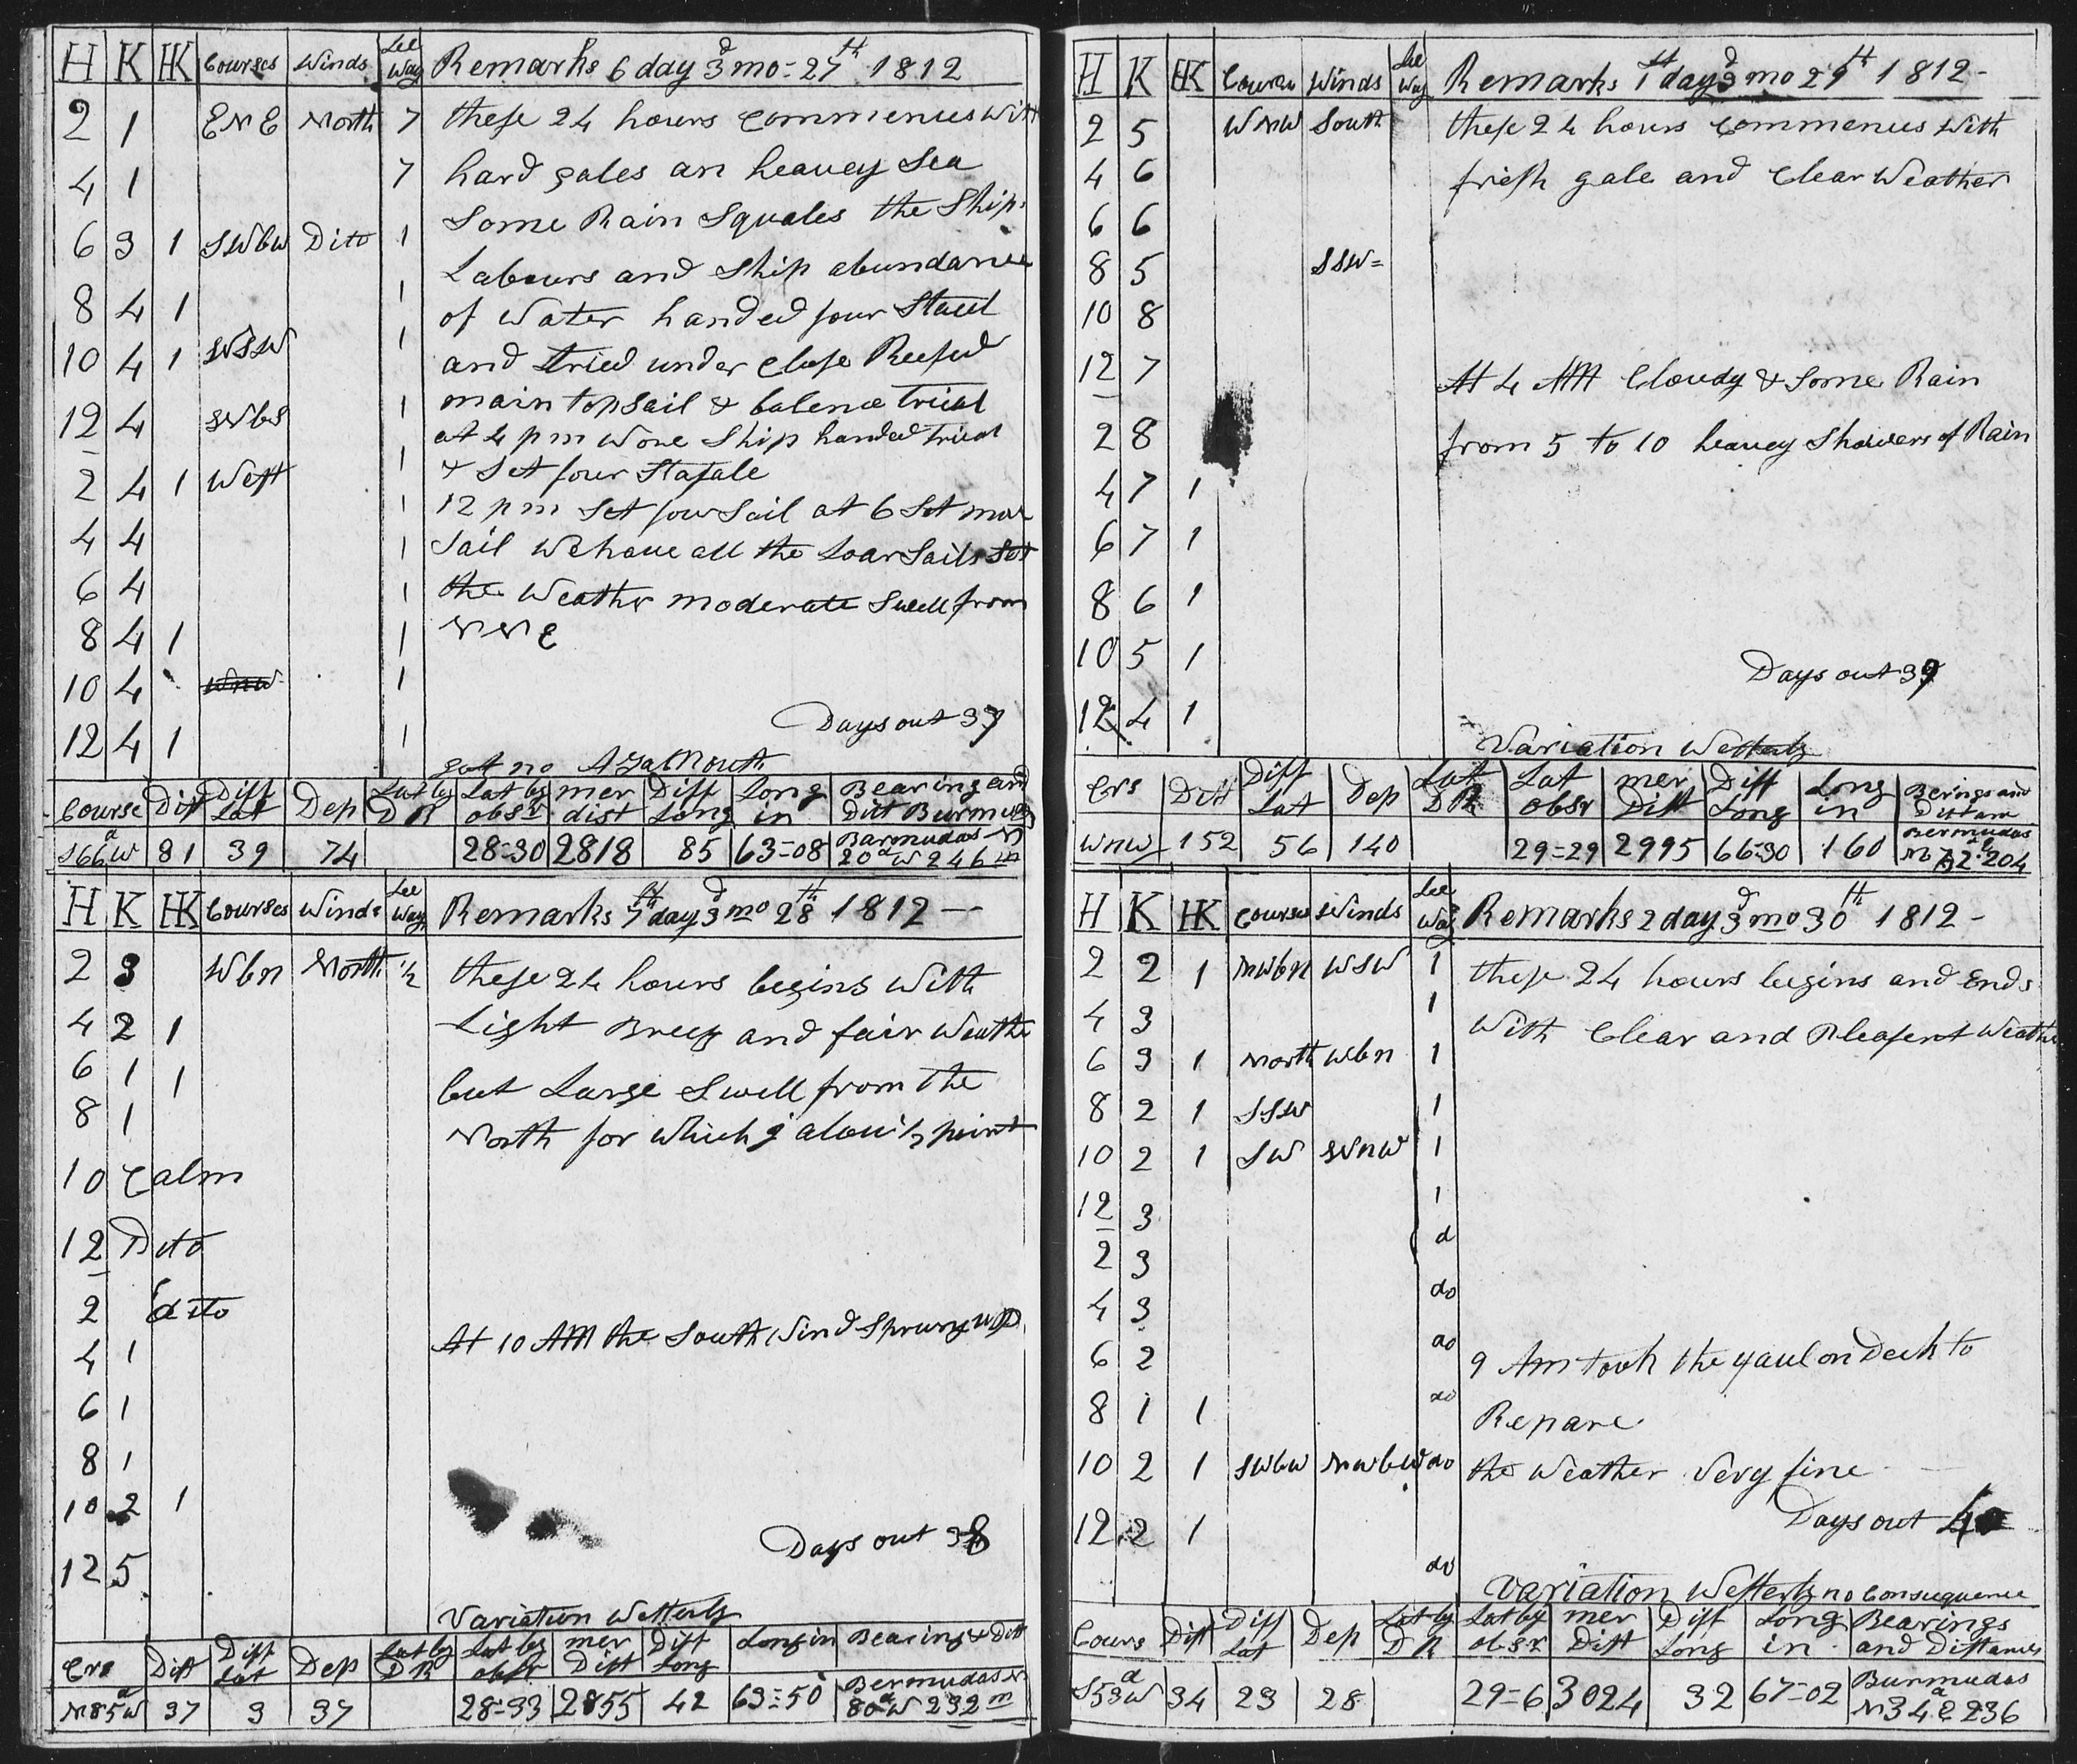 H K HK Courses Winds Lee Way Remarks 6 day 3d mo = 27th 1812
2 1 ENE North 7 these 24 hours Commenues With
4 1 7 hard gales an heavey Sea
Some Rain Squales the Ship
6 3 1 SWbW Ditto 1
Labours and Ship abundance
8 4 1 1 of Water handed four Stasel
10 4 1 WSW 1 and tried under Close Reefed
main topsail & balence
12 4 WbS 1 at 4 pm Wore Ship handed
& Set four Stasale
2 4 1 West 1 12 pm Set four Sail at 6 Set more
4 4 1 Sail We have all the Loar Sails Set
6 4 1 the Weather moderate Swell from
8 4 1 1 NNE
10 4 WNW 1
Days out 37
12 4 1 1
got no
Course Dist Diff Lat Dep Lat by DR Lat by obsr mer dist Diff Long Long in Bearing and Dist Burmudas
S66d W 81 39 74 28=30 2818 85 63=08 Barmudas N 20d W 246 m
H K HK Courses Winds Lee Way Remarks 7th day 3d mo 28th 1812 —
2 3 Wbn North ½ these 24 hours begins With
4 2 1 Light Breez and fair Weather
6 1 1 but Large Swell from the
8 1 North for which I alow ½ point
10 Calm
12 Dito
2 dito
At 10 AM the South Wind Sprung up
4 1
6 1
8 1
10 2 1
Days out 38
12 5
Variation Westerly
Crs Dist Diff Lat Dep Lat by DR Lat by obsr mer Dist Diff Long Long in Bearing & Dist
N85d W 37 3 37 28=33 2855 42 63=50 Bermudas N 80d W 232 m
H K HK Courses Winds Lee Way Remarks 1st day 3d mo 29th 1812 -
2 5 WNW South these 24 hours Commenues With
4 6 fresh gale and Clear Weather
6 6
8 5 SSW=
10 8
12 7 At 4 AM Cloudy & Some Rain
2 8 from 5 to 10 heavey Showers of Rain
4 7 1
6 7 1
8 6 1
10 5 1
Days out 39
12 4 1
Variation Westerly
Crs Dist Diff Lat Dep Lat DR Lat obsr mer Dist Diff Long Long in Berings and Distam
WNW 152 56 140 29=29 2995 66=30 160 Bermudas N 204
H K HK Courses Winds Lee Way Remarks 2 day 3d mo 30th 1812 -
2 2 1 NWbN WSW 1 these 24 hours begins and Ends
4 3 1 With Clear and Pleasent Weather
6 3 1 North Wbn 1
8 2 1 SSW 1
10 2 1 SW WNW 1
12 3 1
2 3 d
4 3 do
6 2 do 9 Am took the yaul on Deck to
8 1 1 do Repare
10 2 1 SWbW NWbW do the Weather Very fine
Days out 40
12 2 1 do
Variation Westerly no Consequence
Cours Dist Diff Lat Dep Lat by DR Lat by obsr mer Dist Diff Long Long in Bearings and Distances
S53d W 34 23 28 29=6 3024 32 67=02 Burmudas N34d E 236